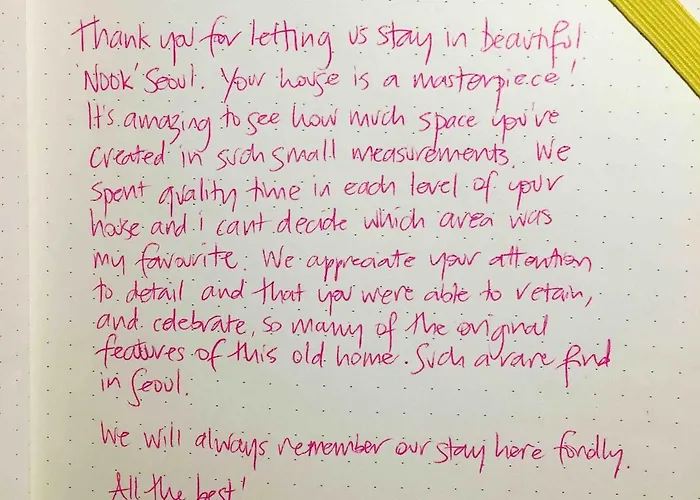 Thank you for letting us stay in beautiful
'Nook' Seoul. Your house is a masterpiece!
It's amazing to see how much space you've
created in such small measurements. We
spent quality time in each level of your
house and i cant decide which area was
my favourite. We appreciate your attention
to detail and that you were able to retain,
and celebrate, so many of the original
features of this old home. Such a rare find
in Seoul.
We will always remember our stay here fondly.
All the best!